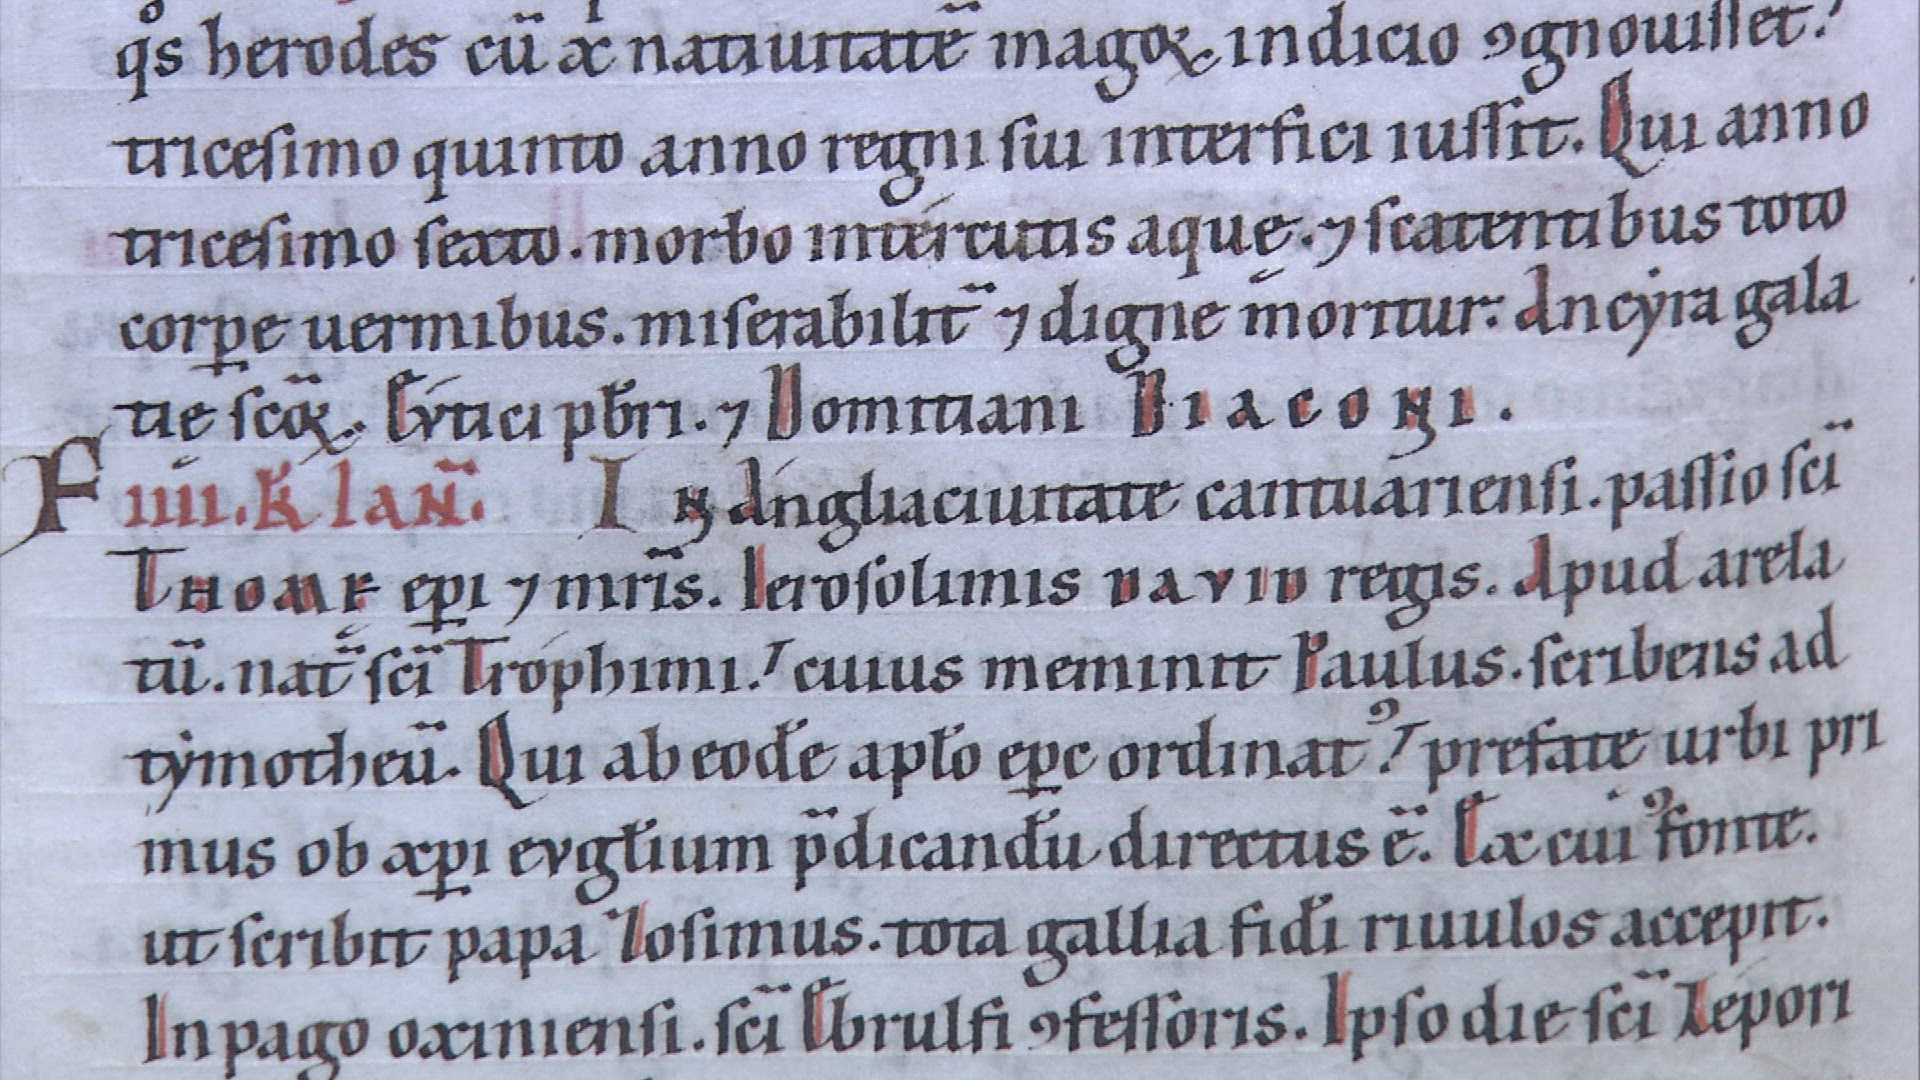 qͦs herodes cū xp̄i natiuitatē magoꝝ indicio ꝯgnouisset.
tricesimo quinto anno regni sui interfici iussit. Qui anno
tricesimo sexto. morbo intercutis aquę. ⁊ scatentibus toto
corꝑe uermibus. miserabilit̄ ⁊ digne moritur. Ancyra gala
tię scōꝝ. Eytici pb̄ri. ⁊ Domitiani DIACONI.
F iiii. kł ian̄. IN Anglia ciuitate cantuariensi. passio sc̄i
THOMĘ ep̄i ⁊ mr̄is. Ierosolimis DAVID regis. Apud arela
tū. nat̄ sc̄i Trophimi. cuius meminit Paulus. scribens ad
tymotheū. Qui ab eodē apło ep̄c ordinatꝰ. prefatę urbi pri
mus ob xp̄i eugłium p̄dicandū directus ē. Ex cuiꝰ fonte.
ut scribit papa Zosimus. tota gallia fidei riuulos accepit.
In pago oximiensi. sc̄i Ebrulfi ꝯfessoris. Ipso die sc̄i